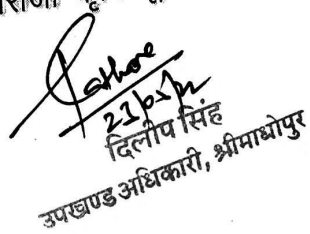 Rathore
23/05/22
दिलीप सिंह
उपखण्ड अधिकारी, श्रीमाधोपुर